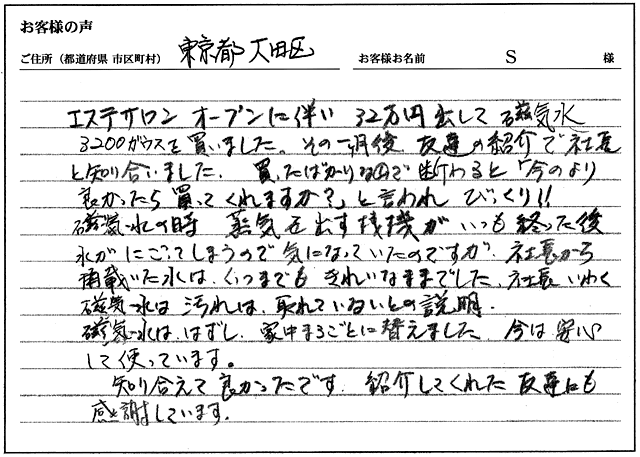 お客様の声
ご住所（都道府県 市区町村） 東京都 大田区 お客様お名前 S 様
エステサロン オープンに伴い 32万円出して 磁気水
3200ガウスを買いました。その一ヶ月後 友達の紹介で社長
と知り合いました。買ったばかりなので断わると「今のより
良かったら買ってくれますか？」と言われ びっくり!!
磁気水の時 蒸気を出す機械が いつも終った後
水がにごってしまうので気になっていたのですが、社長から
頂いた水は、いつまでもきれいなままでした。社長いわく
磁気水は 汚れは、取れていないとの説明。
磁気水は、はずし、家中まるごとに替えました 今は安心
して使っています。
知り合えて良かったです。紹介してくれた友達にも
感謝しています。